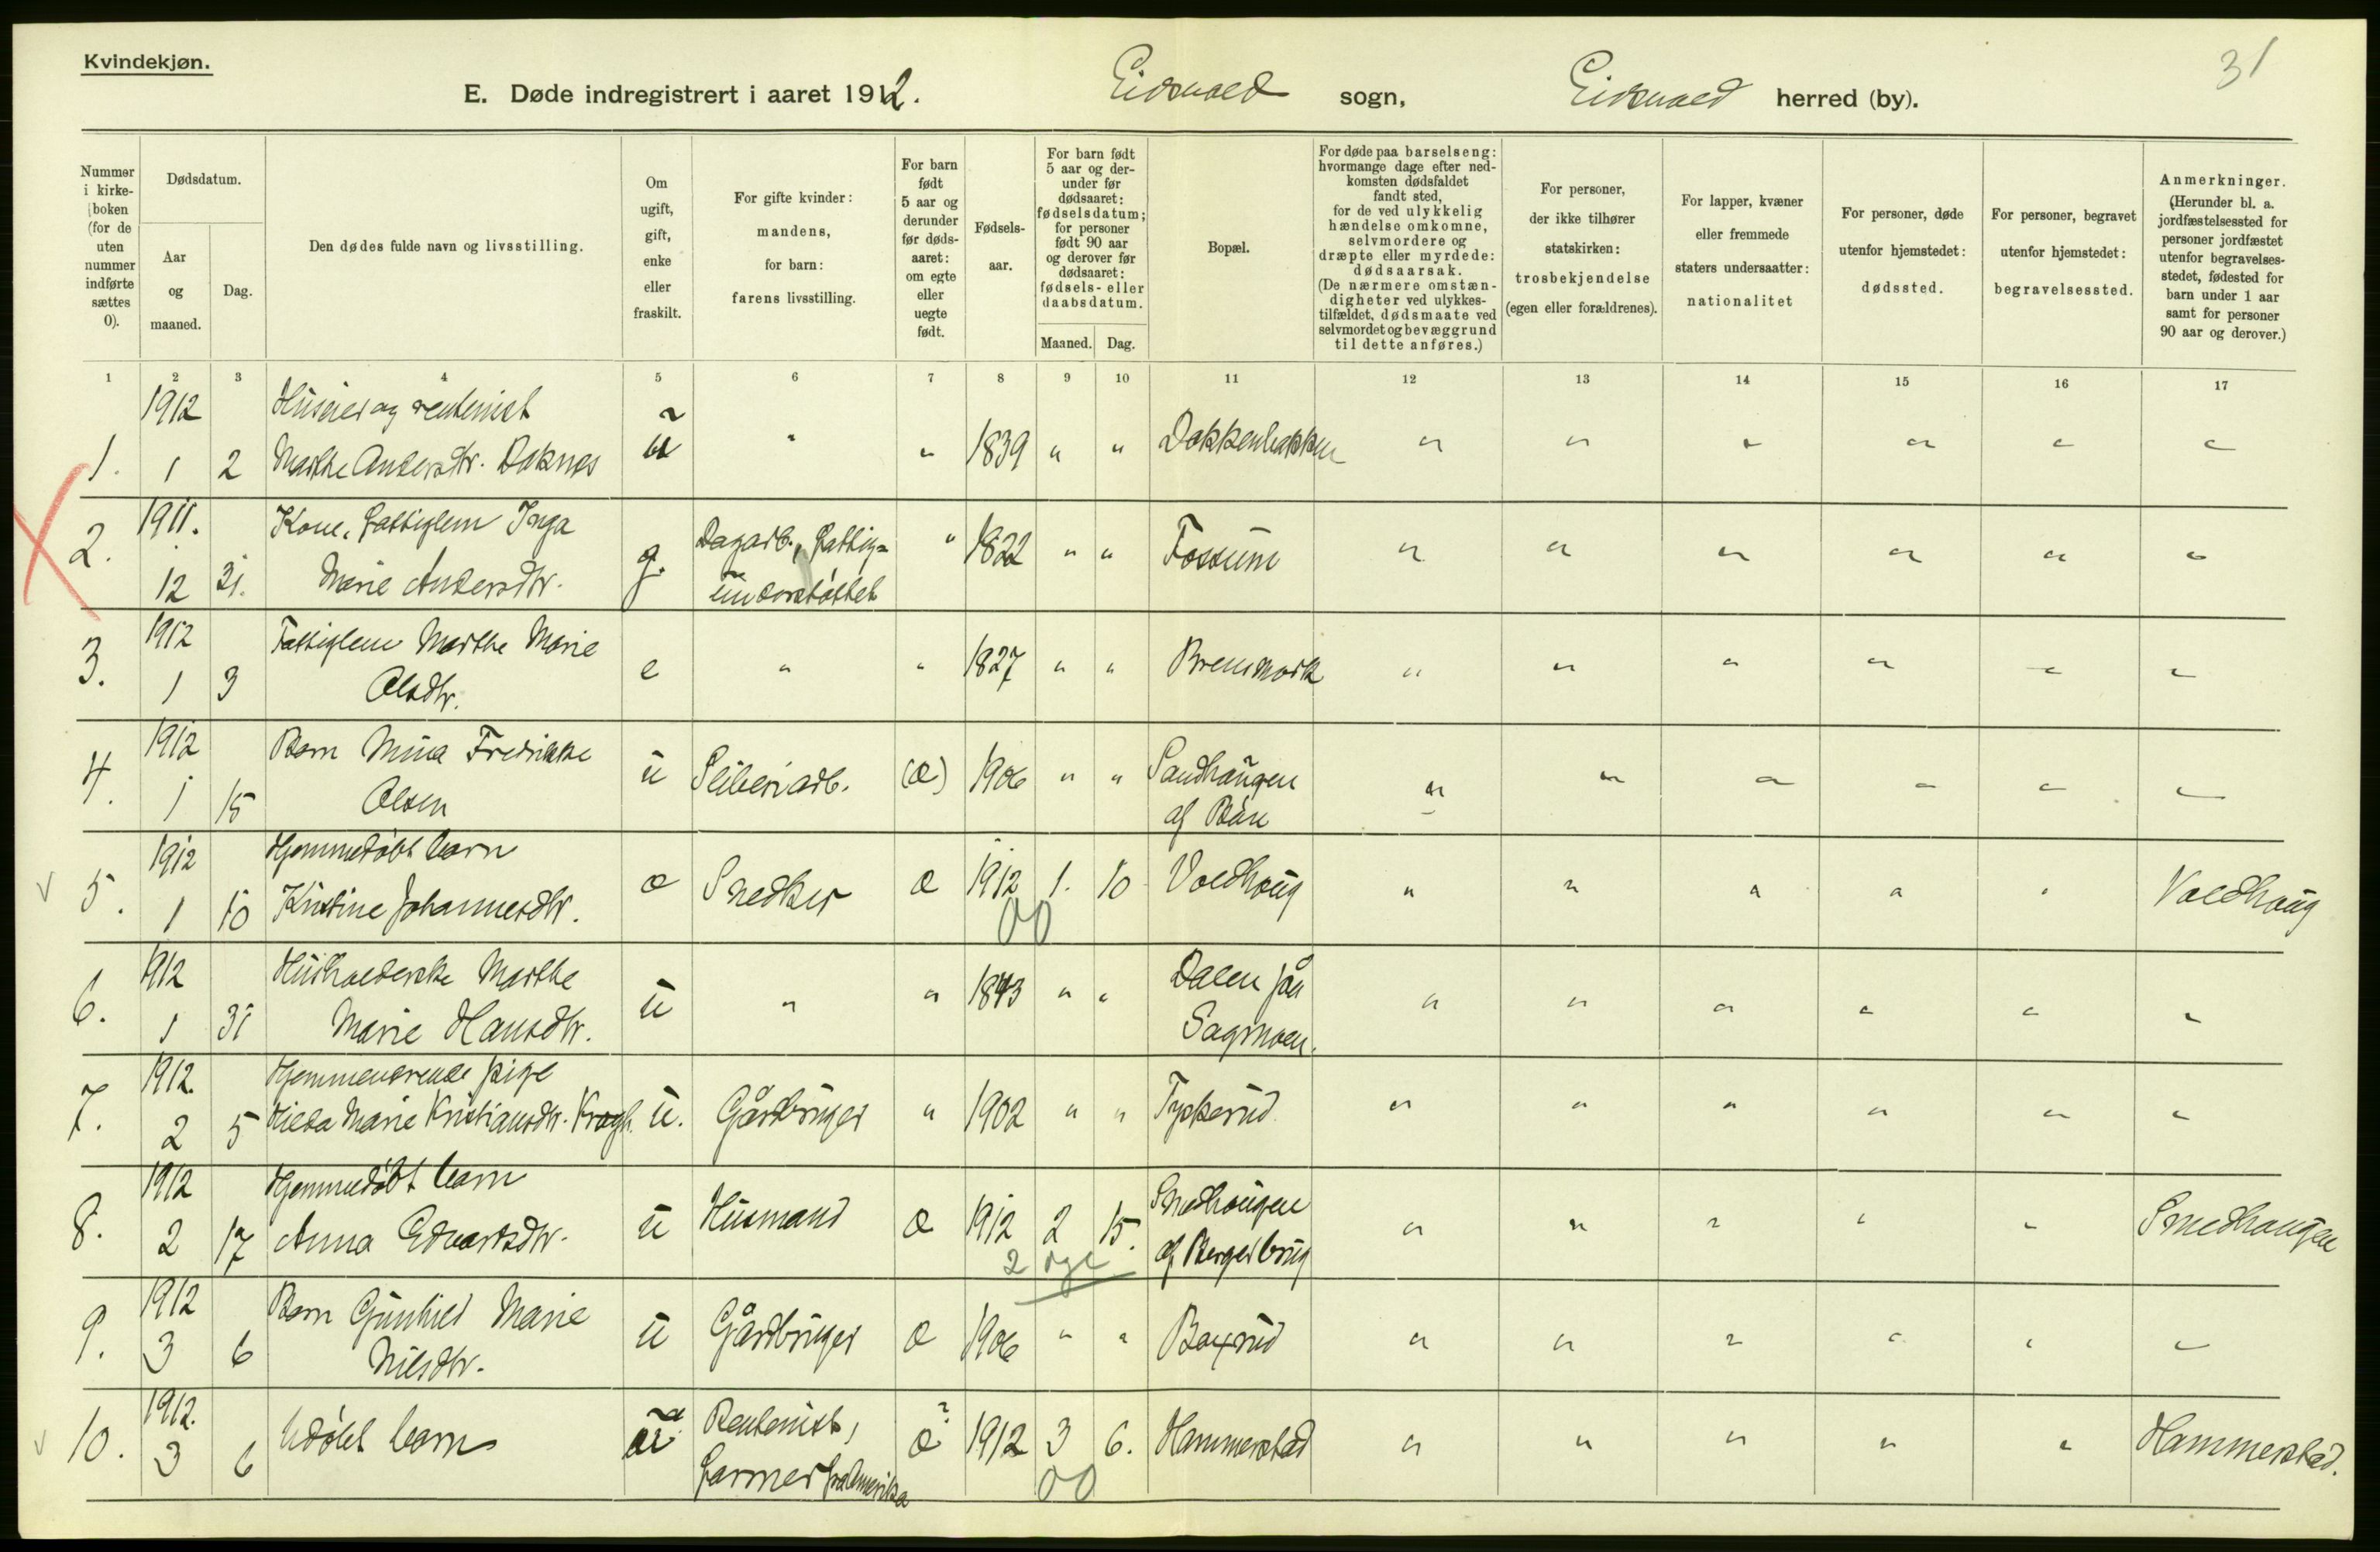 Kvindekjøn.
31
E. Døde indregistrert i aaret 1912. Eidsvold sogn, Eidsvold herred (by).
Nummer i kirke-boken (for de uten nummer indførte sættes 0).
Dødsdatum.
Aar og maaned.
Dag.
Den dødes fulde navn og livsstilling.
Om ugift, gift, enke eller fraskilt.
For gifte kvinder: mandens, for barn: farens livsstilling.
For barn født 5 aar og derunder før døds-aaret: om egte eller uegte født.
Fødsels-aar.
For barn født 5 aar og der-under før dødsaaret: fødselsdatum; for personer født 90 aar og derover før dødsaaret: fødsels- eller daabsdatum.
Maaned. Dag.
Bopæl.
For døde paa barselseng: hvormange dage efter ned-komsten dødsfaldet fandt sted, for de ved ulykkelig hændelse omkomne, selvmordere og dræpte eller myrdede: dødsaarsak. (De nærmere omstæn-digheter ved ulykkes-tilfældet, dødsmaate ved selvmordet og bevæggrund til dette anføres.)
For personer, der ikke tilhører statskirken: trosbekjendelse (egen eller forældrenes).
For lapper, kvæner eller fremmede staters undersaatter: nationalitet
For personer, døde utenfor hjemstedet: dødssted.
For personer, begravet utenfor hjemstedet: begravelsessted.
Anmerkninger. (Herunder bl. a. jordfæstelsessted for personer jordfæstet utenfor begravelses-stedet, fødested for barn under 1 aar samt for personer 90 aar og derover.)
1 2 3 4 5 6 7 8 9 10 11 12 13 14 15 16 17
1912 Huseier og rentenist
1. 1 2 Marthe Andersdtr. Doknes u " " 1839 " " Dokkenbakken " " " " " "
1911. Kone, fattiglem Inga
2. 12 31. Marie Andersdtr. g. Dagarb., fattig= understøttet " 1822 " " Fossum " " " " " "
1912 Fattiglem Marthe Marie
3. 1 3 Olsdtr. e " " 1827 " " Brensmork " " " " " "
1912 Barn Mina Fredrikke
4. 1 15 Olsen u Sliberiarb. (æ) 1906 " " Sandhaugen af Bån " " " " " "
1912 Hjemmedøbt barn
5. 1 10 Kristine Johannesdtr. o Snedker æ 1912 1. 10 Voldhaug " " " " " Voldhaug
00
1912 Husholderske Marthe
6. 1 31 Marie Hansdtr. u " " 1843 " " Dalen på Sagmoen. " " " " " "
1912. Hjemmeværende pige
7. 2 5 Hilda Marie Kristiansdtr. Kragh. u. Gårdbruger " 1902 " " Tykkerud " " " " " "
1912 Hjemmedøbt barn
8. 2 17 Anna Edvardsdtr. u Husmand æ 1912 2 15. Snedhaugen af Bergerbrug " " " " " Smedhaugen
2 dge
1912 Barn Gunhild Marie
9. 3 6 Nilsdtr. u Gårdbruger æ 1906 " " Boxrud " " " " " "
1912.
10. 3 6 Udøbt barn Rentenist, farmer fra Amerika æ 1912 3 6. Hammerstad " " " " " Hammerstad.
00